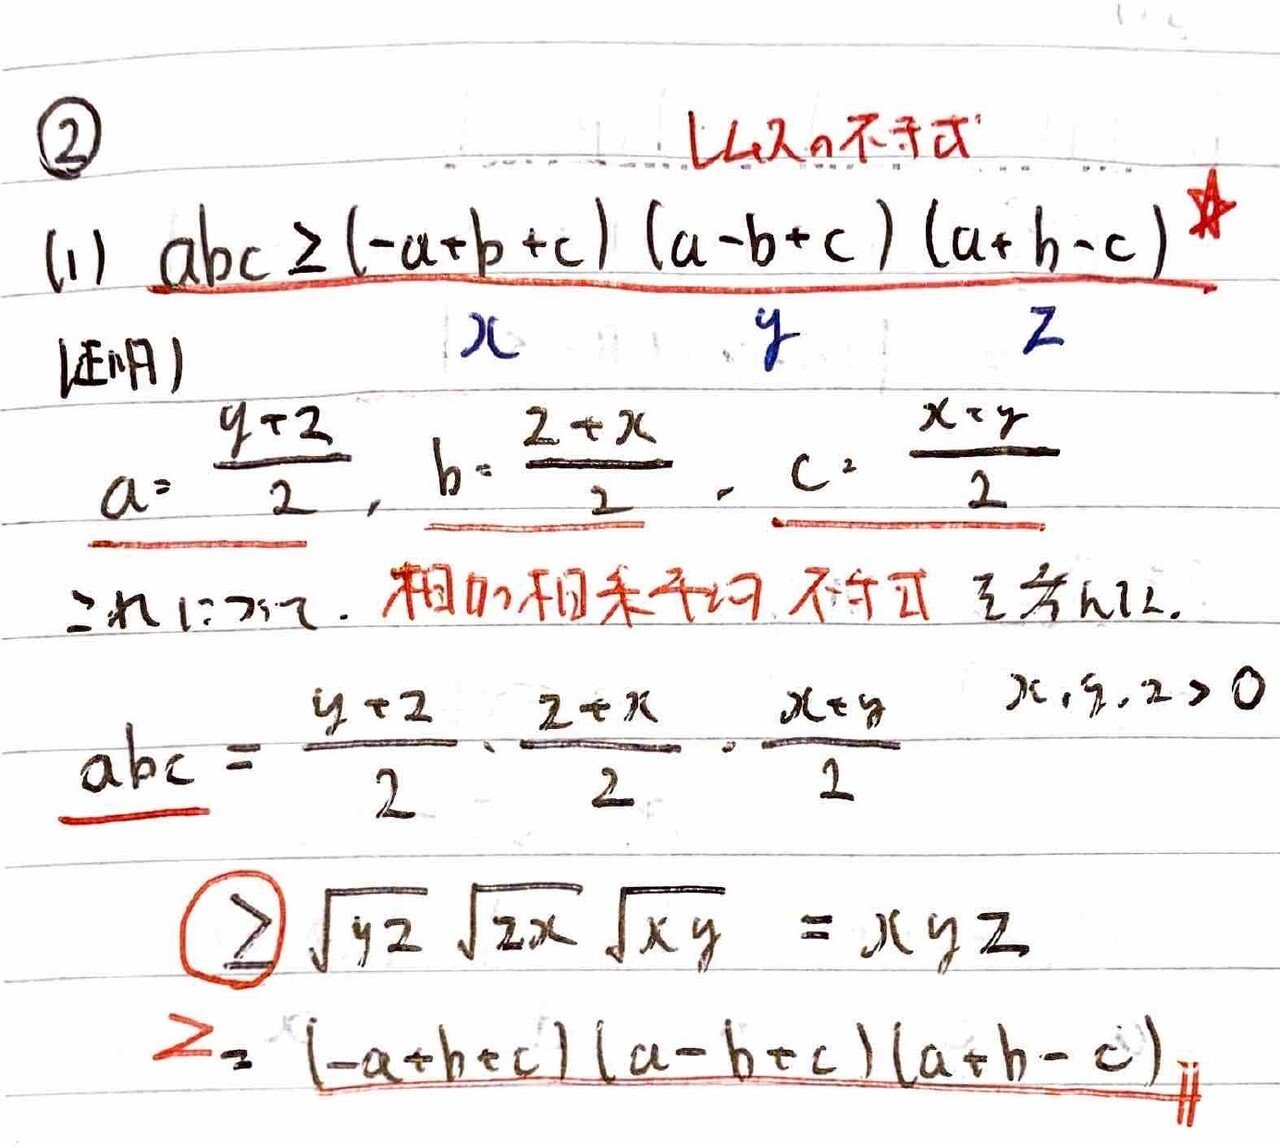 ②
レムスの不等式
(1) abc ≥ (-a+b+c) (a-b+c) (a+b-c) ☆
x y z
証明)
a = y+z/2 , b = z+x/2 , c = x+y/2
これについて. 相加相乗平均 不等式 を考えて.
abc = y+z/2 · z+x/2 · x+y/2 x, y, z > 0
≥ √yz √zx √xy = xyz
≥ = (-a+b+c) (a-b+c) (a+b-c)